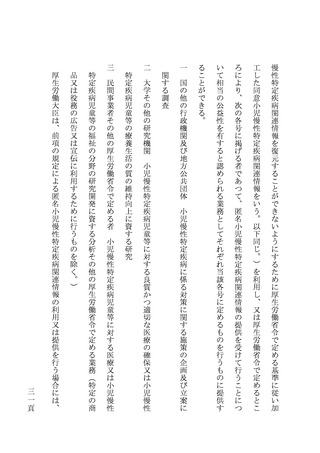 慢性特定疾病関連情報を復元することができないようにするために厚生労働省令で定める基準に従い加
工した同意小児慢性特定疾病関連情報をいう。以下同じ。）を利用し、又は厚生労働省令で定めるとこ
ろにより、次の各号に掲げる者であつて、匿名小児慢性特定疾病関連情報の提供を受けて行うことにつ
いて相当の公益性を有すると認められる業務としてそれぞれ当該各号に定めるものを行うものに提供す
ることができる。
一　国の他の行政機関及び地方公共団体　小児慢性特定疾病に係る対策に関する施策の企画及び立案に
関する調査
二　大学その他の研究機関　小児慢性特定疾病児童等に対する良質かつ適切な医療の確保又は小児慢性
特定疾病児童等の療養生活の質の維持向上に資する研究
三　民間事業者その他の厚生労働省令で定める者　小児慢性特定疾病児童等に対する医療又は小児慢性
特定疾病児童等の福祉の分野の研究開発に資する分析その他の厚生労働省令で定める業務（特定の商
品又は役務の広告又は宣伝に利用するために行うものを除く。）
厚生労働大臣は、前項の規定による匿名小児慢性特定疾病関連情報の利用又は提供を行う場合には、
三一頁